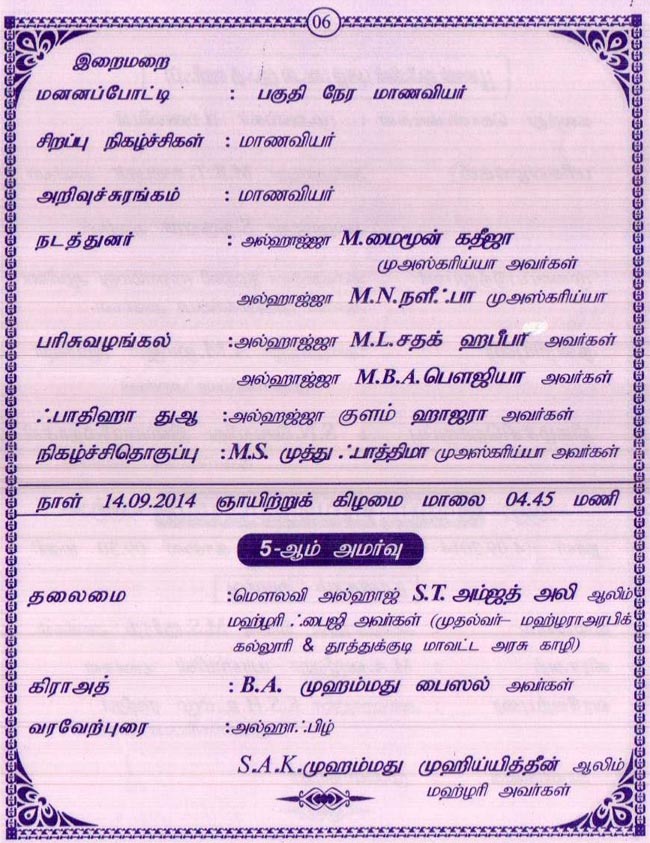 06
இறைமறை
மனனப்போட்டி : பகுதி நேர மாணவியர்
சிறப்பு நிகழ்ச்சிகள் : மாணவியர்
அறிவுச்சுரங்கம் : மாணவியர்
நடத்துனர் : அல்ஹாஜ்ஜா M.மைமூன் கதீஜா
முஅஸ்கரிய்யா அவர்கள்
அல்ஹாஜ்ஜா M.N.நளீஃபா முஅஸ்கரிய்யா
பரிசுவழங்கல் :அல்ஹாஜ்ஜா M.L.சதக் ஹபீபா அவர்கள்
அல்ஹாஜ்ஜா M.B.A.பௌஜியா அவர்கள்
ஃபாதிஹா துஆ :அல்ஹஜ்ஜா குளம் ஹாஜரா அவர்கள்
நிகழ்ச்சிதொகுப்பு :M.S. முத்து ஃபாத்திமா முஅஸ்கரிய்யா அவர்கள்
நாள் 14.09.2014 ஞாயிற்றுக் கிழமை மாலை 04.45 மணி
5-ஆம் அமர்வு
தலைமை :மௌலவி அல்ஹாஜ் S.T. அம்ஜத் அலி ஆலிம்
மஹ்ழரி ஃபைஜி அவர்கள் (முதல்வர்– மஹ்ழராஅரபிக்
கல்லூரி & தூத்துக்குடி மாவட்ட அரசு காழி)
கிராஅத் : B.A. முஹம்மது பைஸல் அவர்கள்
வரவேற்புரை :அல்ஹாஃபிழ்
S.A.K.முஹம்மது முஹிய்யித்தீன் ஆலிம்
மஹ்ழரி அவர்கள்